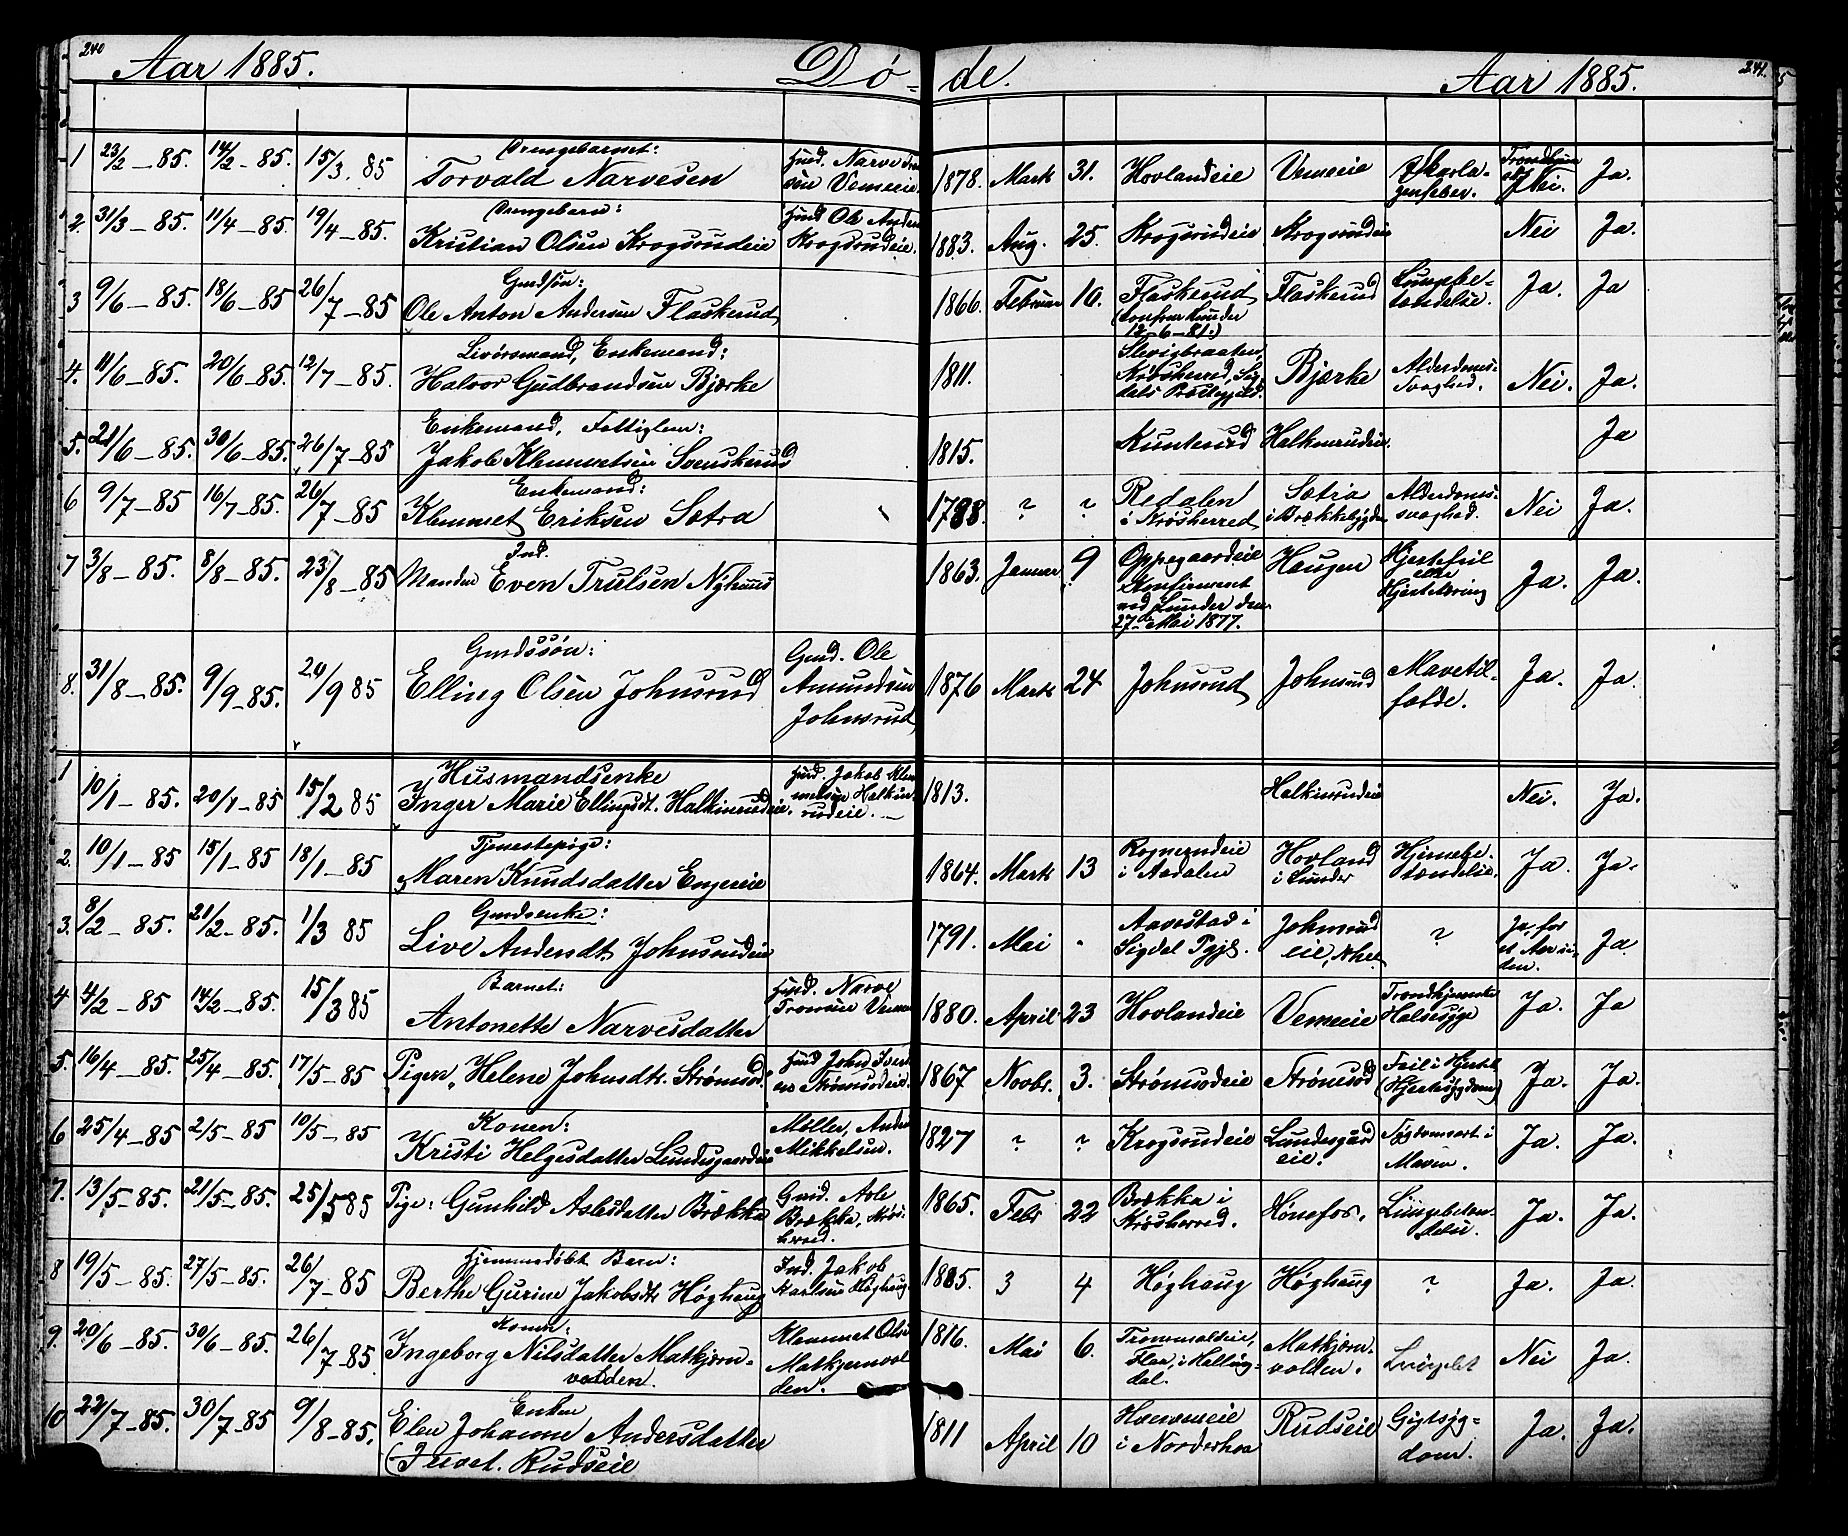 240
Aar 1885.
Dø-de.
Aar 1885.
241.
1 23/2 - 85. 14/2 - 85. 15/3. 85 Drengebarnet: Torvald Narvesen
Husd. Narve Tron
sen Vemeeie. 1878. Marts 31. Hovlandeie Vemeeie Skarla-
gensfeber. Nei. Ja.
2. 31/3 - 85. 11/4 - 85. 19/4 - 85. Drengebarn: Kristian Olsen Krogsrudeie
Husd. Ole Anders
Krogsrudeie. 1883. Aug. 25. Krogsrudeie Krogsrudeie Nei Ja.
3 9/6 - 85. 18/6 - 85 26/7 - 85 Grdsøn: Ole Anton Andersen Flaskerud
1866. Februar 10. Flaskerud Flaskerud Lungebe-
tændelse. Ja. Ja
12-6-81.)
4. 11/6 - 85. 20/6 - 85. 12/7 - 85. Livøresmand, Enkemand:
Halvor Gudbrandsen Bjærke
1811. Slevigbraaten,
Krødsherred, Sig-
dals Præstegjeld. Bjærke Alderdoms-
svaghed. Nei. Ja.
5. 21/6 - 85. 30/6 - 85. 26/7 - 85 Enkemand, Fattiglem:
Jakob Klemmetsen Svenskerud
1815. Kunterud Halkinrudeie Ja
6 9/7 - 85 16/7 - 85. 26/7 - 85 Enkemand:
Klemmet Eriksen Sætra
1788. ? ? Redalen
i Krødsherred Sætra
i Brækkebygden Alderdoms-
svaghed. Nei Ja.
7 3/8 - 85. 8/8 - 85. 23/8 - 85 Ind.
Manden Even Trulsen Nyhuus
1863. Januar 9 Oppegaardeie
Konfirmeret
ved Lunder den
27de Mai 1877. Haugen Hjertefeil
eller
Hjertetæring Ja. Ja.
8. 31/8 - 85. 9/9 - 85. 20/9 85 Grdssøn:
Elling Olsen Johnsrud
Grd. Ole
Amundsen
Johnsrud 1876 Marts 24 Johnsrud Johnsrud Mavetil-
fælde. Ja. Ja.
1 10/1 - 85. 20/1 - 85 15/2 85 Husmandsenke
Inger Marie Ellingsdt. Halkinrudeie.
Husd. Jakob Klem
metsen Halkin-
rudeie. 1813. Halkinrudeie Nei. Ja.
2. 10/1 - 85 15/1 - 85 18/1 - 85 Tjenestepige:
Maren Knudsdatter Engereie
1864. Marts 13 Rognerudeie
i Aadalen Hovland
i Lunder Hjernebe-
tændelse. Ja. Ja.
3. 8/2 - 85. 21/2 - 85. 1/3 85 Grdsenke:
Live Andersdt. Johnsrudeie
1791. Mai Aavestad i
Sigdal Pgjd. Johnsrud
eie, ? Ja, for
et Aar si-
den. Ja
4 4/2 - 85 14/2 - 85. 15/3 85 Barnet:
Antonette Narvesdatter
Husd. Narve
Tronsen Vemeeie 1880. April 23 Hovlandeie Vemeeie Trondhjemske
Halssyge Ja. Ja
5. 16/4 - 85 25/4 - 85. 17/5 - 85 Pigen, Helene Johnsdtr. Strømsod.
Husd John Ivers
en Strømsodeie. 1867 Novbr. 3. Strømsodeie Strømsod Feil i Hjertet
(Hjertesygdom) Ja. Ja.
6 25/4 - 85 2/5 - 85 10/5 - 85 Konen:
Kristi Helgesdatter Lundesgaardeie
Møller, Anders
Mikkelsen. 1827 ? ? Krogsrudeie Lundesgård
eie. Sygdomsart i
Maven. Ja. Ja.
7. 13/5 - 85. 21/5 - 85. 25/5 85 Pige: Gunhild Aslesdatter Brækka
Grd. Asle
Brækka, Krøds-
herred. 1865. Febr 22 Brækka i
Krødsherred. Hønefos. Lungebetæn-
delse. Ja. Ja.
8 19/5 - 85. 27/5 - 85. 26/7 - 85 Hjemmedøbt Barn:
Berthe Gurine Jakobsdt. Høghaug
Ind. Jakob
Karlsen Høghaug 1885. 3 4 Høghaug Høghaug ? Ja. Ja.
9. 20/6 - 85. 30/6 - 85. 26/7 - 85 Konen:
Ingeborg Nilsdatter Matkjørn-
volden.
Klemmet Olsen
Matkjernvol
den. 1816. Mai 6. Trommaldeie,
Flaa, i Halling-
dal. Matkjørn-
volden. Nei Ja.
10 22/7 - 85. 30/7 - 85 9/8 - 85. Enken
Elen Johanne Andersdatter
Tuvet. Rudseie
1811 April 10 Hverveneie
i Norderhov Rudseie Gigtsyg-
dom. Ja. Ja.